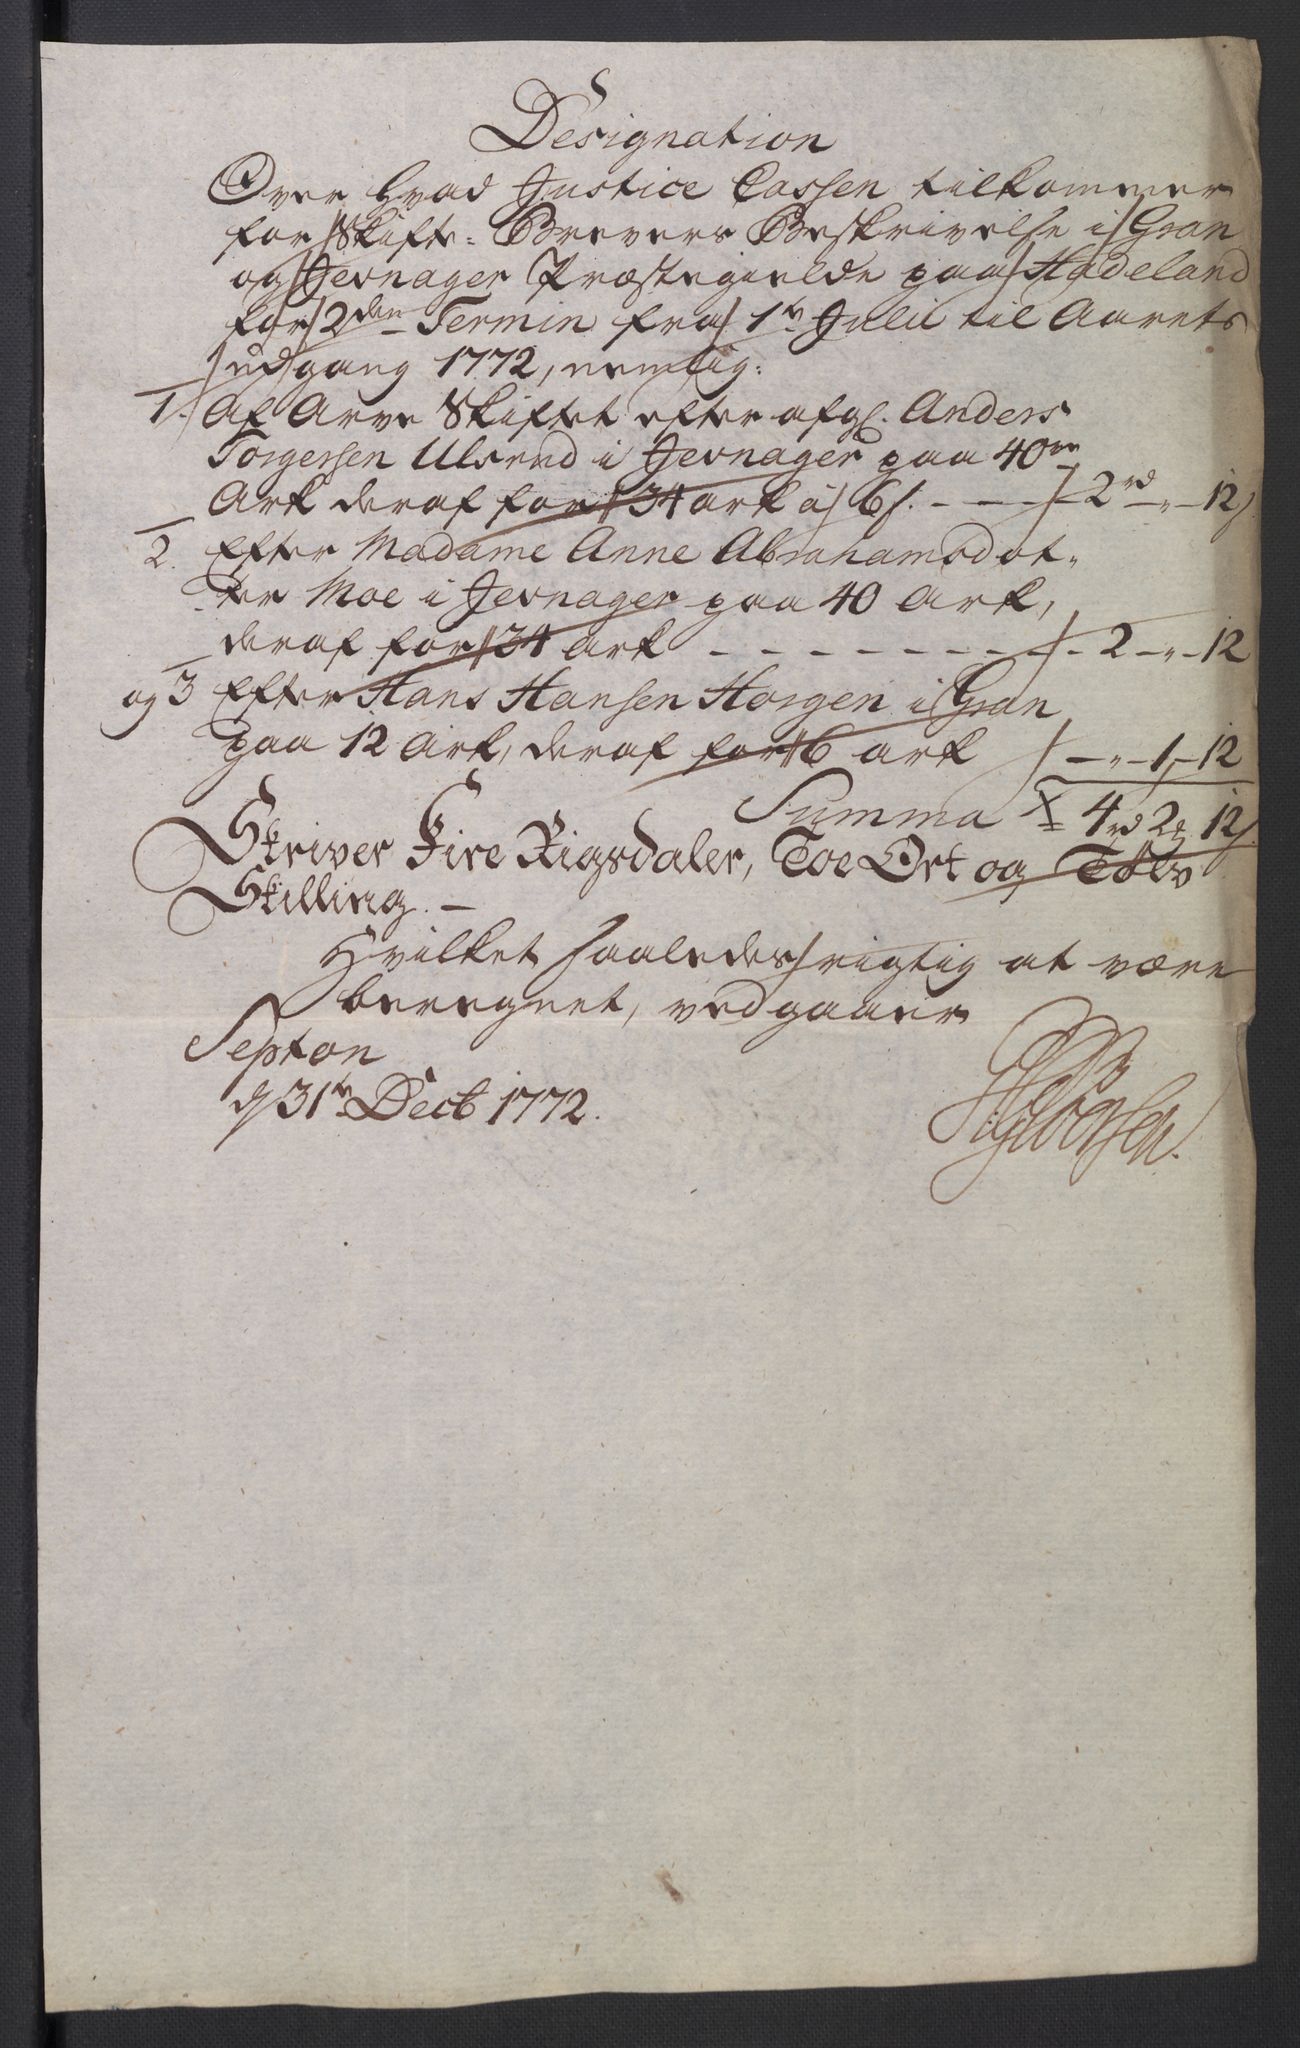 Designation
Over hvad Justice Cassen tilkommer
for Skifte-Brevers Beskrivelse i Gran
og Jevnager Præstegielde paa Hadeland
for 2den Termin fra 1te Julii til Aarets
udgang 1772, nemlig:
1. Af Arve Skiftet efter afgl. Anders
Torgersen Ulsrud i Jevnager paa 40ve
Ark deraf for 34 ark á 6 s. - - - 2 rd - " - 12 s
2. Efter Madame Anne Abrahamsdot-
ter Moe i Jevnager paa 40 Ark,
deraf for 34 ark - - - - - - - - - 2 - " - 12
og 3 Efter Hans Hansen Horgen i Gran
paa 12 Ark, deraf for 6 ark - " - 1 - 12
Summa 4 rd 2 12 s
Skriver Fire Rigsdaler, Toe Ort og Tolv
Skilling. -
Hvilket saaledes rigtig at være
beregnet, vedgaaer
Septon
d 31te Decb 1772.